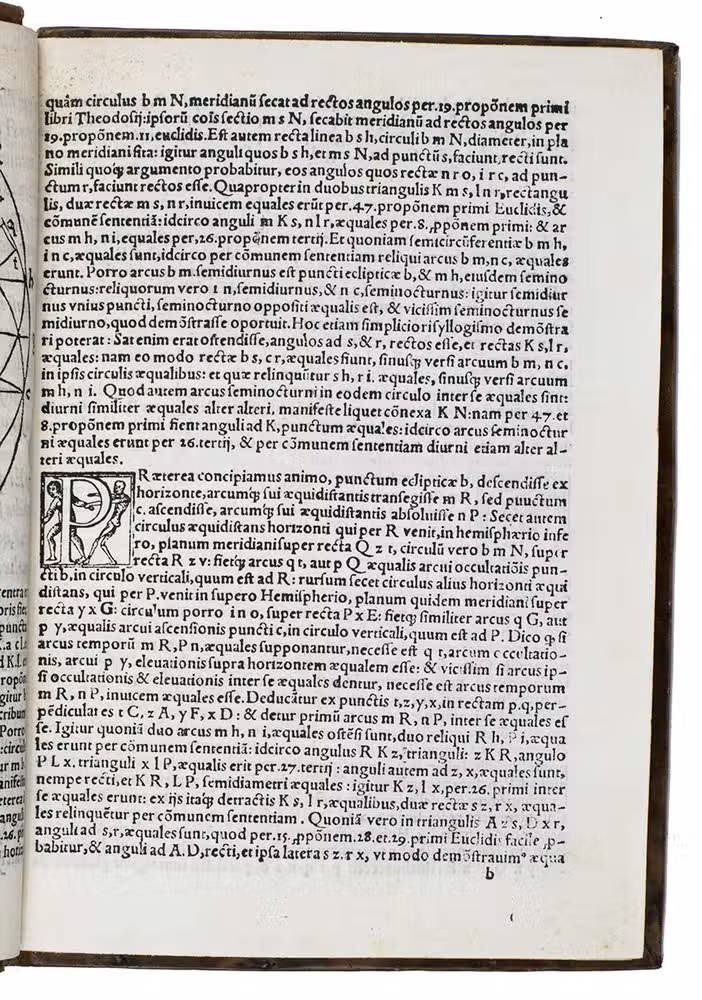 quâm circulus b m N, meridianũ secat ad rectos angulos per. 19. propõnem primi
libri Theodosij: ipsorũ cõis sectio m s N, secabit meridianũ ad rectos angulos per
19. propõnem. 11, euclidis. Est autem recta linea b s h, circuli b m N, diameter, in pla
no meridiani sita: igitur anguli quos b s h, et m s N, ad punctũ s, faciunt, recti sunt.
Simili quoqȝ argumento probabitur, eos angulos quos rectæ n r o, i r c, ad pun-
ctum r, faciunt rectos esse. Quapropter in duobus triangulis K m s, l n r, rectangu
lis, duæ rectæ m s, n r, inuicem equales erũt per. 47. propõnem primi Euclidis, &
cõmunẽ sententiã: idcirco anguli m K s, n l r, æquales per. 8. ꝓpõnem primi: & ar
cus m h, n i, equales per, 26. propõnem tertij. Et quoniam semicircũferentiæ b m h,
i n c, æquales sunt, idcirco per cõmunem sententiam reliqui arcus b m, n c, æquales
erunt. Porro arcus b m. semidiurnus est puncti eclipticæ b, & m h, eiusdem semino
cturnus: reliquorum vero i n, semidiurnus, & n c, seminocturnus: igitur semidiur
nus vnius puncti, seminocturno oppositi æqualis est, & vicissim seminocturnus se
midiurno, quod demõstrasse oportuit. Hoc etiam simpliciori syllogismo demõstra
ri poterat: Sat enim erat ostendisse, angulos ad s, & r, rectos esse, et rectas K s, l r,
æquales: nam eo modo rectæ b s, c r, æquales fiunt, sinusqȝ versi arcuum b m, n c,
in ipsis circulis æqualibus: et quæ relinquũtur s h, r i. æquales, sinusqȝ versi arcuum
m h, n i. Quod autem arcus seminocturni in eodem circulo inter se æquales sint:
diurni similiter æquales alter alteri, manifeste liquet cõnexa K N: nam per 47. et
8. propõnem primi fient anguli ad K, punctum æquales: idcirco arcus seminoctur
ni æquales erunt per 26. tertij, & per cõmunem sententiam diurni etiam alter al-
teri æquales.
PRæterea concipiamus animo, punctum eclipticæ b, descendisse ex
horizonte, arcumqȝ sui æquidistantis transegisse m R, sed puuctum
c. ascendisse, arcumqȝ sui æquidistantis absoluisse n P: Secet autem
circulus æquidistans horizonti qui per R venit, in hemisphærio infe
ro, planum meridiani super recta Q z t, circulũ vero b m N, super
recta R z v: fietqȝ arcus q t, aut p Q æqualis arcui occultatiõis pun-
cti b, in circulo verticali, quum est ad R: rursum secet circulus alius horizonti æqui
distans, qui per P. venit in supero Hemispherio, planum quidem meridiani super
recta y x G: circulum porro i n o, super recta P x E: fietqȝ similiter arcus q G, aut
p y, æqualis arcui ascensionis puncti c, in circulo verticali, quum est ad P. Dico ꝙ si
arcus temporũ m R, P n, æquales supponantur, necesse est q t, arcum occultatio-
nis, arcui p y, eleuationis supra horizontem æqualem esse: & vicissim si arcus ip-
si occultationis & eleuationis inter se æquales dentur, necesse est arcus temporum
m R, n P, inuicem æquales esse. Deducãtur ex punctis t, z, y, x, in rectam p. q, per-
pẽdiculares t C, z A, y F, x D: & detur primũ arcus m R, n P, inter se æquales es
se. Igitur quoniã duo arcus m h, n i, æquales ostẽsi sunt, duo reliqui R h, P i, æqua
les erunt per cõmunem sententiã: idcirco angulus R K z, trianguli: z K R, angulo
P L x, trianguli x l P, æqualis erit per. 27. tertij: anguli autem ad z, x, æquales sunt,
nempe recti, et K R, L P, semidiametri æquales: igitur K z, l x, per. 26. primi inter
se æquales erunt: ex ijs itaqȝ detractis K s, l r, æqualibus, duæ rectæ s z, r x, æqua-
les relinquẽtur per cõmunem sententiam. Quoniã vero in triangulis A z s, D x r,
anguli ad s, r, æquales sunt, quod per. 15. ꝓpõnem. 28. et. 29. primi Euclidis facile ꝓ-
babitur, & anguli ad A. D, recti, et ipsa latera s z. r x, vt modo demõstrauimꝰ æqua
b